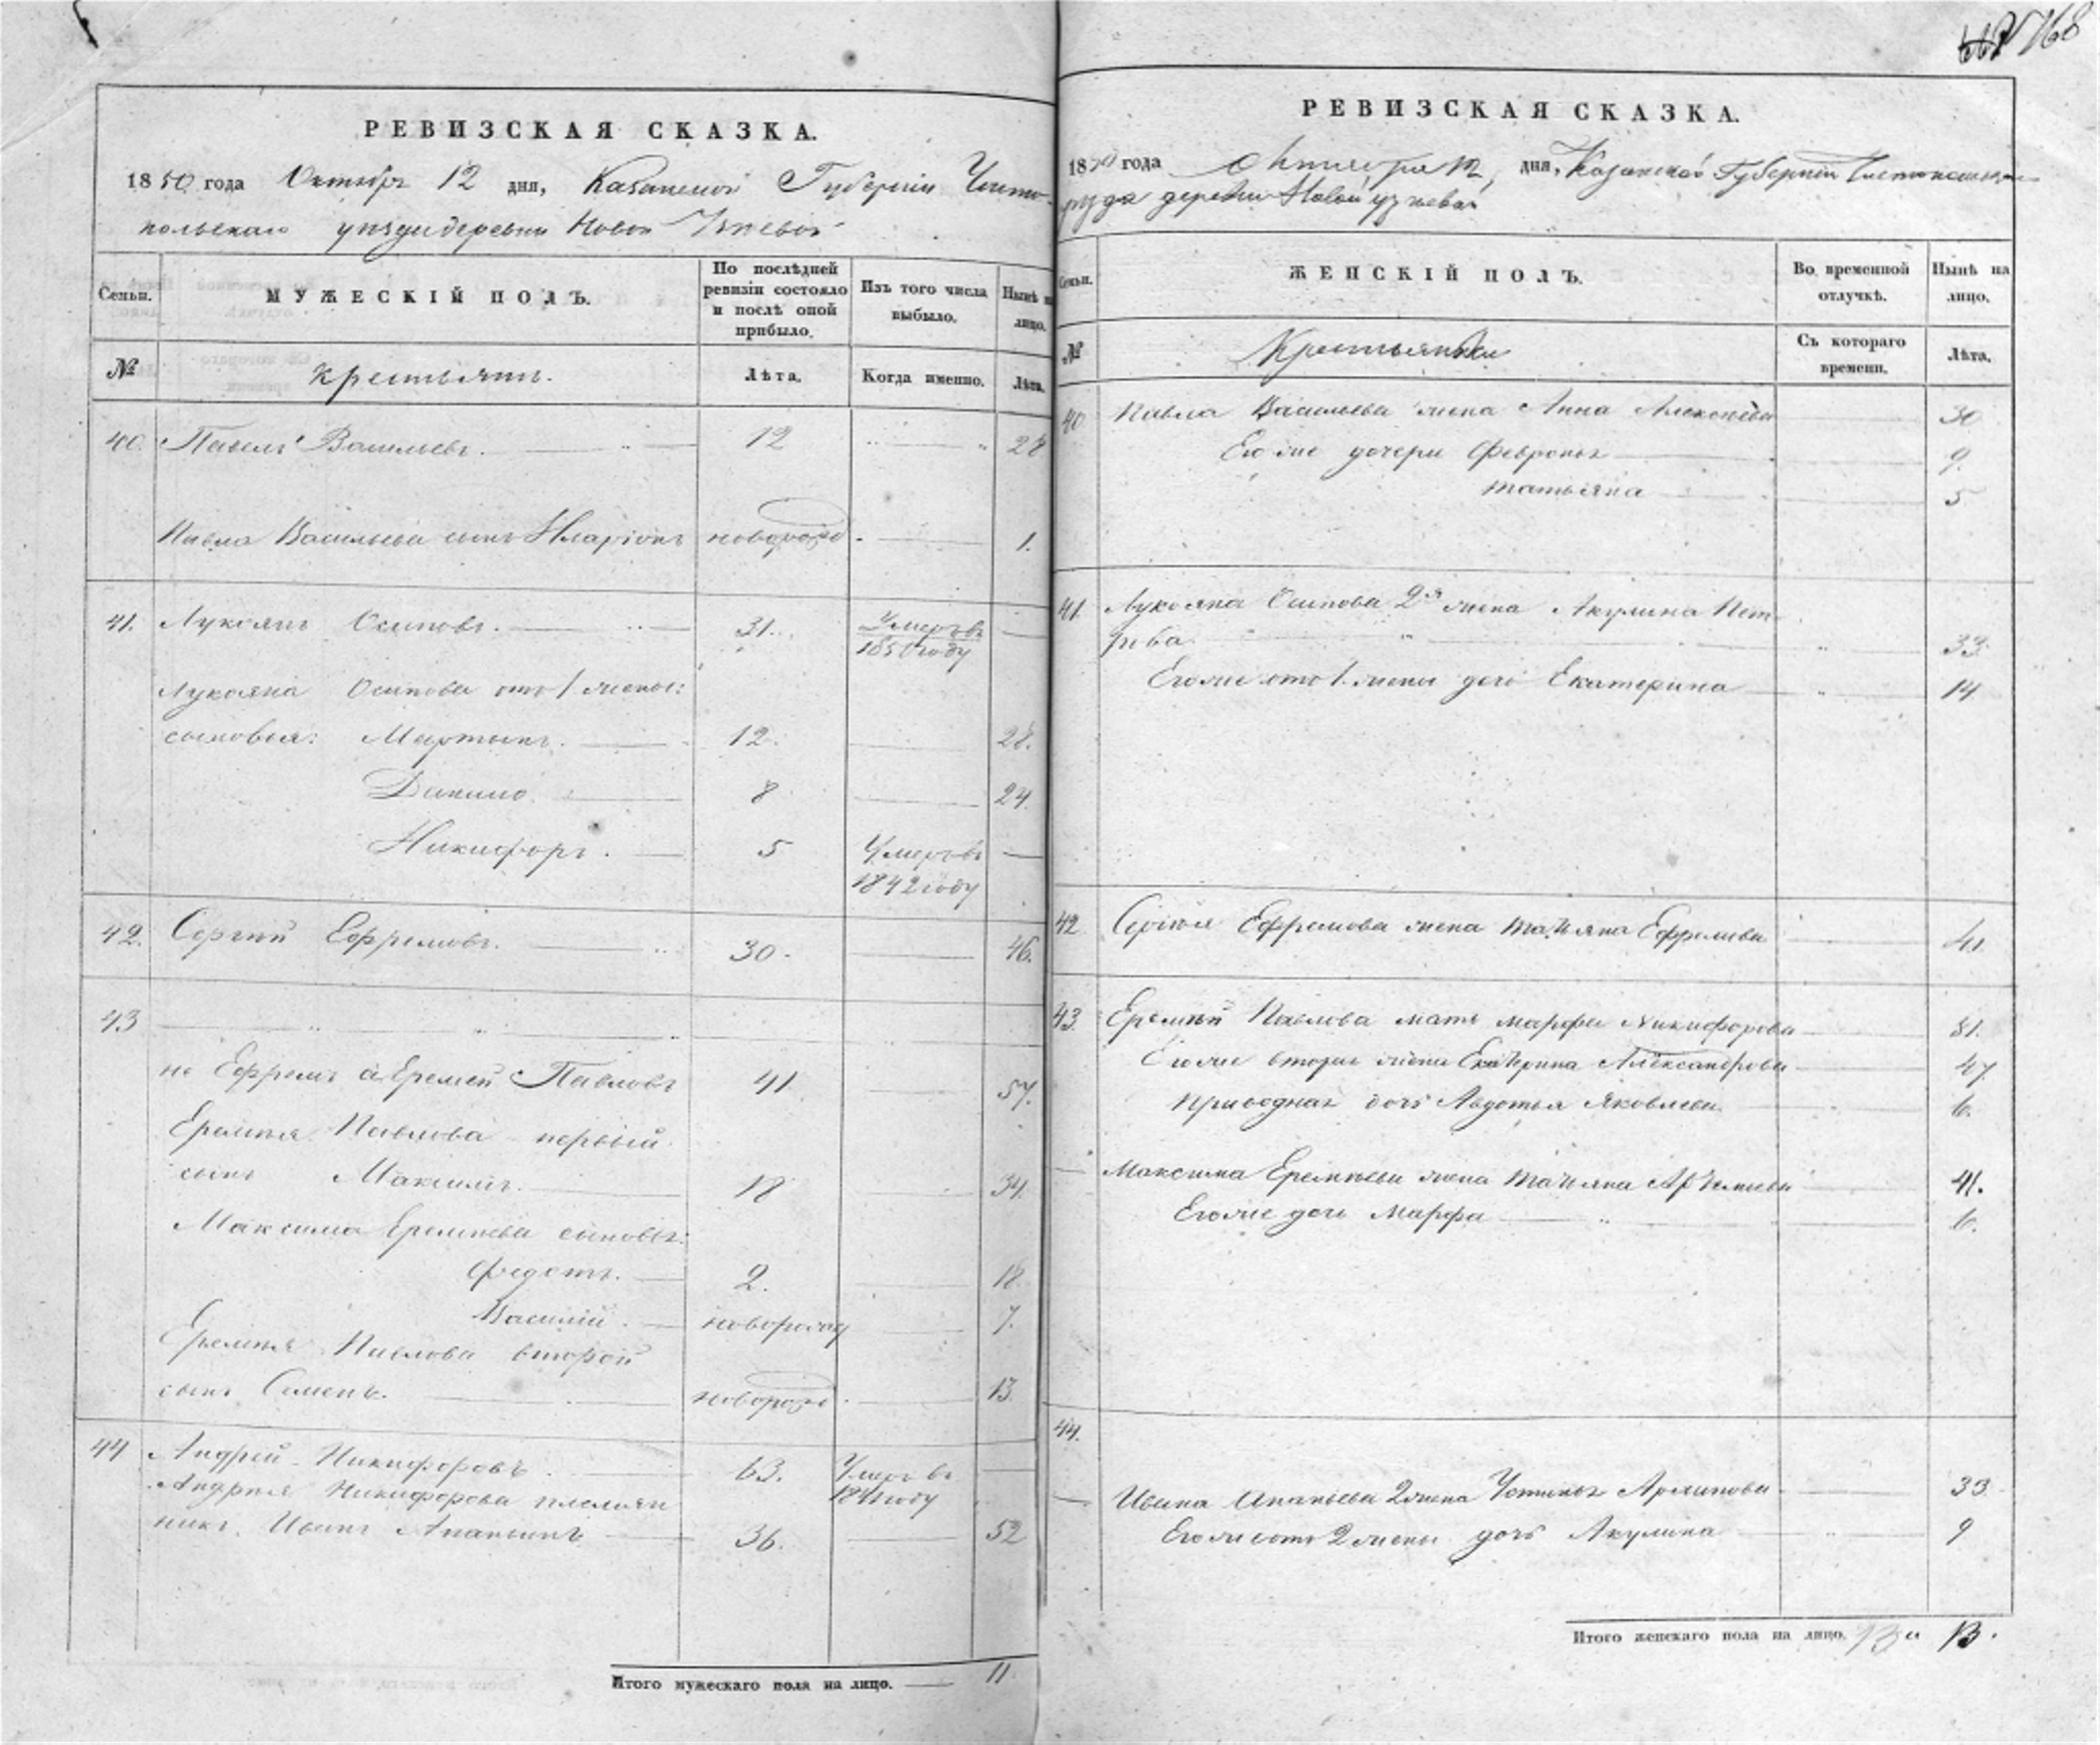 РЕВИЗСКАЯ СКАЗКА.
1850 года Октября 12 дня, Казанской Губернии Чисто-
польскаго уѣзда деревни Новой
Семьи.
МУЖЕСКІЙ ПОЛЪ.
По послѣдней ревизіи состояло и послѣ оной прибыло.
Изъ того числа выбыло.
Нынѣ на лицо.
№
крестьяне.
Лѣта.
Когда именно.
Лѣта.
40. Павелъ Васильевъ. 12 28
Павла Васильева сынъ Иларіонъ новорожд. 1.
41. Лукоянъ Осиповъ. 31. Умеръ въ
1850 году
Лукояна Осипова отъ 1 жены:
сыновья: Мартынъ. 12. 28.
Данило. 8 24.
Никифоръ. 5 Умеръ въ
1842 году
42. Сергѣй Ефремовъ. 30. 46.
43
не Ефремъ а Еремей Павловъ 41 57.
Еремѣя Павлова первый
сынъ Максимъ. 18 34.
Максима Еремѣева сыновья:
Федотъ. 2. 18.
Василій. новорожд 7.
Еремѣя Павлова второй
сынъ Семенъ. новорожд. 13.
44 Андрей Никифоровъ. 63. Умеръ въ
году
Андрея Никифорова племян
никъ Иванъ Ананьинъ 36. 52
Итого мужескаго пола на лицо. 11.
168
РЕВИЗСКАЯ СКАЗКА.
1850 года Октября 12, дня, Казанской Губерніи
деревни Новой
Семьи.
ЖЕНСКІЙ ПОЛЪ.
Во временной отлучкѣ.
Нынѣ на лицо.
№
Крестьянки
Съ котораго времени.
Лѣта.
40 Павла Васильева жена Анна Алексѣева 30
Его же дочери Февронья 9.
Татьяна 5
41. Лукояна Осипова 2я жена Акулина Пет-
рова 33.
Его же отъ 1. жены дочь Екатерина 14
42. Сергѣя Ефремова жена Татьяна Ефремова
43. Еремѣй Павлова мать Марфа Никифорова 81.
Его же вторая жена Екатерина Александрова 47.
Приводная дочь Авдотья Яковлева 6.
Максима Еремѣева жена Татьяна 41.
Его же дочь Марфа 6.
44.
Ивана Ананьева 2 жена Устинья Архипова 33.
Его же отъ 2 жены дочь Акулина 9
Итого женскаго пола на лицо. 13.